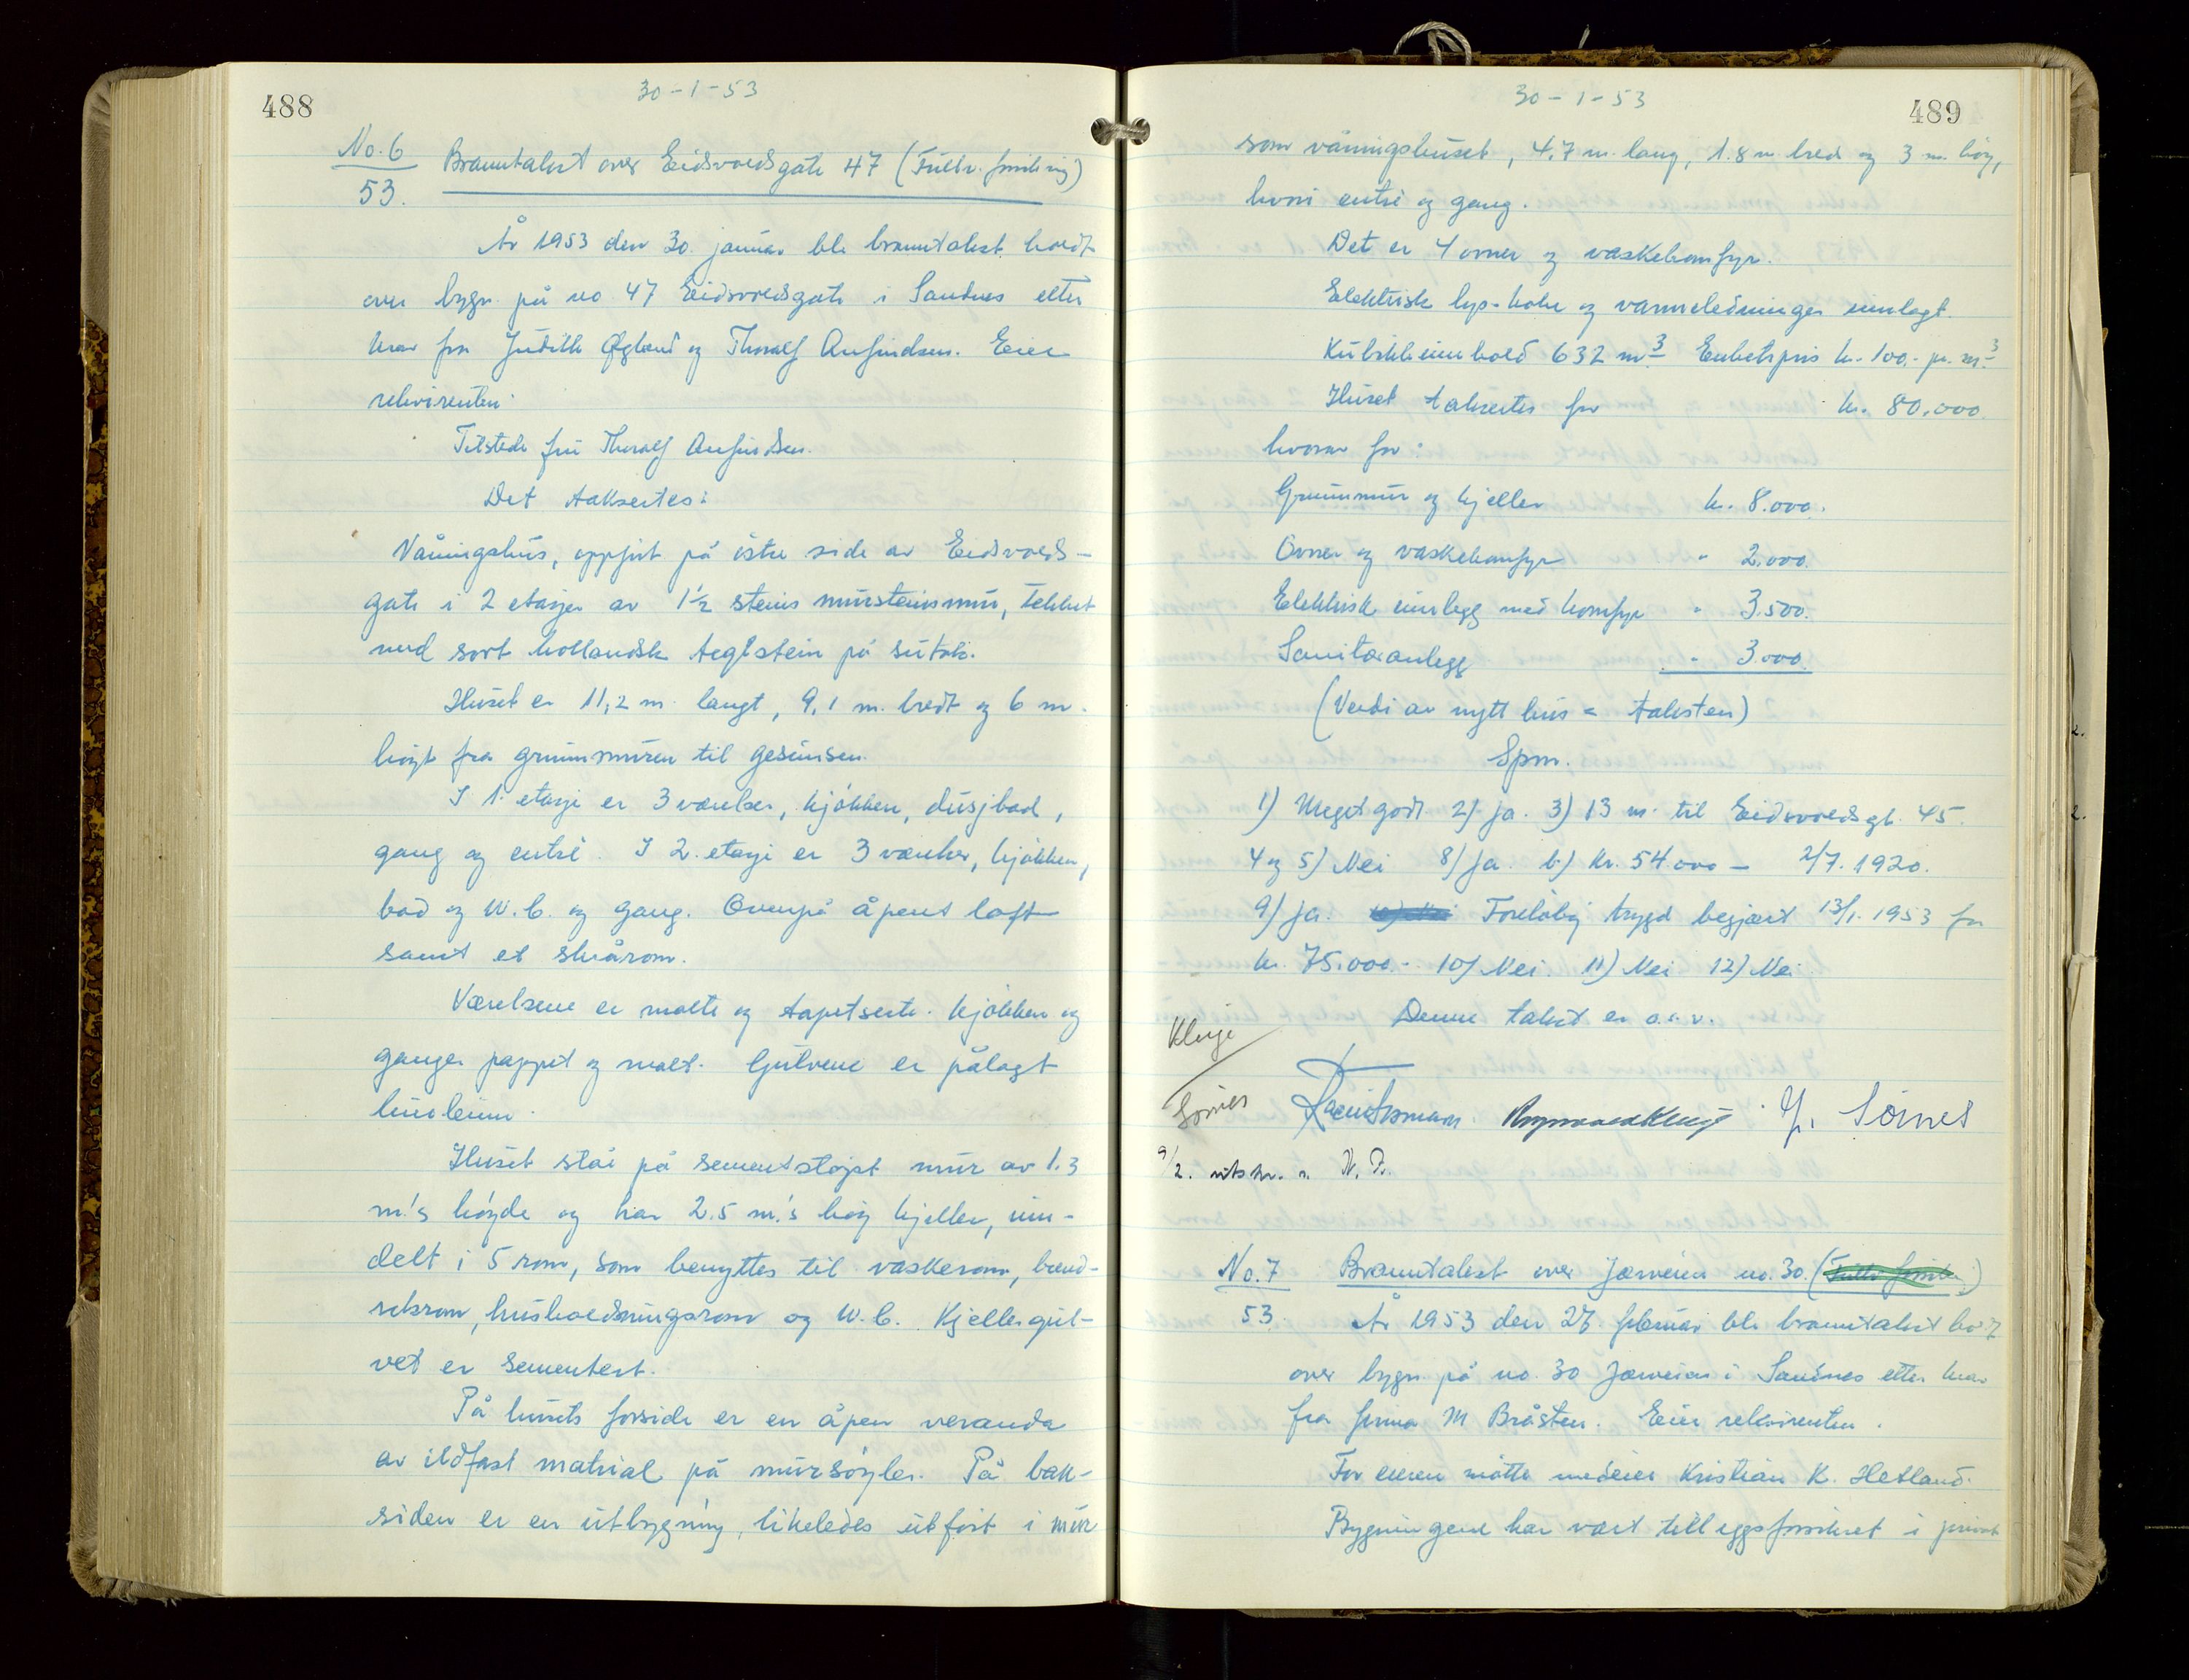 488
30-1-53
No. 6
53.
Branntakst over Eidsvoldsgate 47 (Fullv. forsikring)
År 1953 den 30. januar ble branntakst holdt
over bygn på no 47 Eidsvoldsgate i Sandnes etter
krav fra Judith Øgland og Thoralf Anfindsen. Eier
rekvirenten.
Tilstede fru Thoralf Anfindsen.
Det taksertes:
Våningshus, oppført på östre side av Eidsvolds-
gate i 2 etasjer av 1½ steins mursteinsmur, tekket
med sort hollandsk teglstein på sutak.
Huset er 11,2 m. langt, 9,1 m. bredt og 6 m.
høyt fra grunnmuren til gesimsen.
I 1. etasje er 3 værelser, kjökken, dusjbad,
gang og entré. I 2. etasje er 3 værelser, kjökken,
bad og W.C. og gang. Ovenpå åpent loft
samt et skrårom.
Værelsene er malte og tapetserte. Kjökken og
ganger pappet og malt. Gulvene er pålagt
linoleum.
Huset står på sementstöpt mur av 1.3
m.'s höyde og har 2.5 m.'s höy kjeller, inn-
delt i 5 rom, som benyttes til vaskerom, brend-
selsrom, husholdningsrom og W.C. Kjellergul-
vet er sementert.
På husets forside er en åpen veranda
av ildfast matrial på mursöyler. På bak-
siden er en utbygning, likeledes utfört i mur
30-1-53
489
som våningshuset, 4.7 m. lang, 1.8 m. bred og 3 m. höy,
hvori entré og gang.
Det er 4 ovner og vaskekomfyr.
Elektrisk lys- koke og varmeledninger innlagt.
Kubikkinnhold 632 m³ Enhetspris kr. 100.- pr. m³
Huset takseres for kr. 80.000.
hvorav for:
Grunnmur og kjeller kr. 8.000.
Ovner og vaskekomfyr " 2.000.
Elektrisk innlegg med komfyr " 3.500.
Sanitæranlegg " 3.000.
(Verdi av nytt hus = taksten)
Spm.
1) Meget godt 2) ja. 3) 13 m. til Eidsvoldsgt. 45.
4 og 5) Nei 8) Ja. b) Kr. 54.000 – 2/7. 1920.
9) ja. Foreløbig trygd begjært 13/1. 1953 for
kr. 75.000.- 10) Nei. 11) Nei 12) Nei
Denne takst er o.s.v.
Kluge
Sörnes
Kluge Y. Sörnes
9/2. utskr. s. N. B.
No. 7
53.
Branntakst over Jærveien no. 30.
År 1953 den 27. februar ble branntakst holdt
over bygn på no. 30 Jærveien i Sandnes etter krav
fra firma M Bråsten. Eier rekvirenten.
For eieren møtte medeier Kristian K. Hetland.
Bygningene har vært tilleggsforsikret i privat